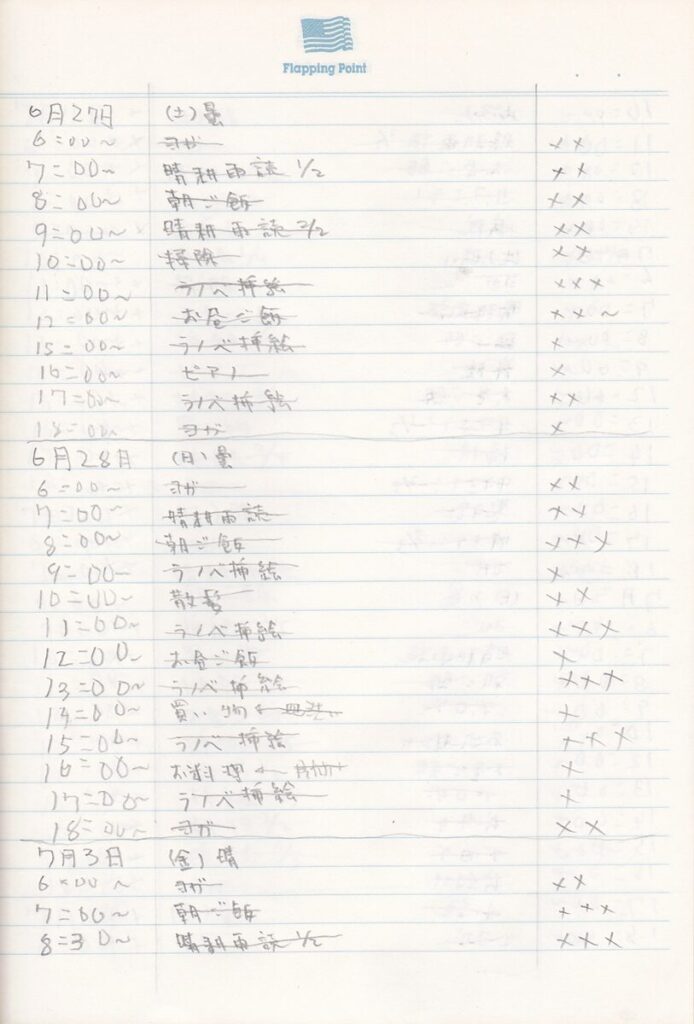 Flapping Point
6月27日 (土)曇
6=00~ ヨガ ××
7=00~ 晴耕雨読 1/2 ××
8=00~ 朝ご飯 ××
9=00~ 晴耕雨読 2/2 ××
10=00~ 掃除 ××
11=00~ ラノベ挿絵 ×××
12=00~ お昼ご飯 ××~
15=00~ ラノベ挿絵 ×
16=00~ ピアノ ×
17=00~ ラノベ挿絵 ××
18=00~ ヨガ ×
6月28日 (日)曇
6=00~ ヨガ ××
7=00~ 晴耕雨読 ××
8=00~ 朝ご飯 ×××
9=00~ ラノベ挿絵 ×
10=00~ 散髪 ××
11=00~ ラノベ挿絵 ×××
12=00~ お昼ご飯 ×
13=00~ ラノベ挿絵 ×××
14=00~ 買い物 ×
15=00~ ラノベ挿絵 ×××
16=00~ お料理 ← ×
17=00~ ラノベ挿絵 ×
18=00~ ヨガ ××
7月3日 (金)晴
6=00~ ヨガ ××
7=00~ 朝ご飯 ×××
8=30~ 晴耕雨読 1/2 ×××